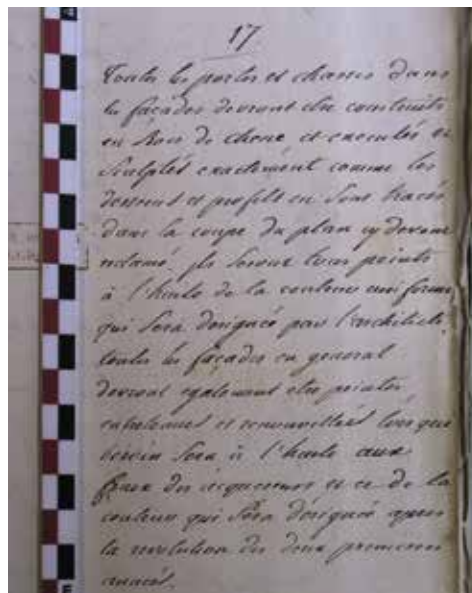 17
Toutes les portes et chassis dans
les façades devront etre construits
en Bois de chene et executés et
Sculptés exactement comme les
desseins et profils en Sont tracés
dans la coupe du plan cy devant
reclamé. ils Seront tous peints
à l'huile de la couleur uniforme
qui Sera designée par l'architecte,
toutes les façades en general
devront egalement etre peintes
et renouvellées lorsque
besoin Sera à l'huile aux
fraix des acquereurs et ce de la
couleur qui Sera designée apres
la revolution des deux premieres
années.